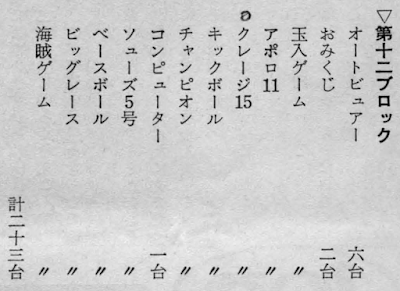 ▽第十二ブロック
オートビュアー　六台
おみくじ　二台
玉入ゲーム　〃
アポロ11　〃
クレージ15　〃
キックボール　〃
チャンピオン　〃
コンピューター　一台
ソューズ5号　〃
ベースボール　〃
ビッグレース　〃
海賊ゲーム　〃
計二十三台